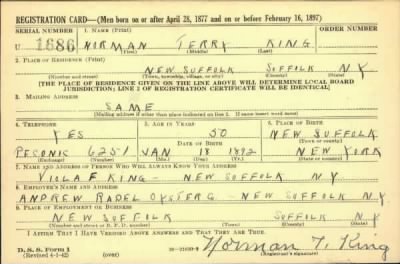 REGISTRATION CARD—(Men born on or after April 28, 1877 and on or before February 16, 1897)
SERIAL NUMBER 1. NAME (Print) ORDER NUMBER
U 1686 NORMAN TERRY KING
(First) (Middle) (Last)
2. PLACE OF RESIDENCE (Print)
NEW SUFFOLK SUFFOLK N Y
(Number and street) (Town, township, village, or city) (County) (State)
[THE PLACE OF RESIDENCE GIVEN ON THE LINE ABOVE WILL DETERMINE LOCAL BOARD
JURISDICTION; LINE 2 OF REGISTRATION CERTIFICATE WILL BE IDENTICAL]
3. MAILING ADDRESS
SAME
[Mailing address if other than place indicated on line 2. If same insert word same]
4. TELEPHONE 5. AGE IN YEARS 6. PLACE OF BIRTH
YES 50 NEW SUFFOLK
DATE OF BIRTH (Town or county)
PECONIC 6251 JAN 18 1892 NEW YORK
(Exchange) (Number) (Mo.) (Day) (Yr.) (State or country)
7. NAME AND ADDRESS OF PERSON WHO WILL ALWAYS KNOW YOUR ADDRESS
VIOLA F KING — NEW SUFFOLK N Y
8. EMPLOYER'S NAME AND ADDRESS
ANDREW RADEL OYSTER NEW SUFFOLK N.Y.
9. PLACE OF EMPLOYMENT OR BUSINESS
NEW SUFFOLK SUFFOLK N.Y.
(Number and street or R. F. D. number) (Town) (County) (State)
I AFFIRM THAT I HAVE VERIFIED ABOVE ANSWERS AND THAT THEY ARE TRUE.
D. S. S. Form 1
(Revised 4-1-42) (over) Norman T. King
(Registrant's signature)